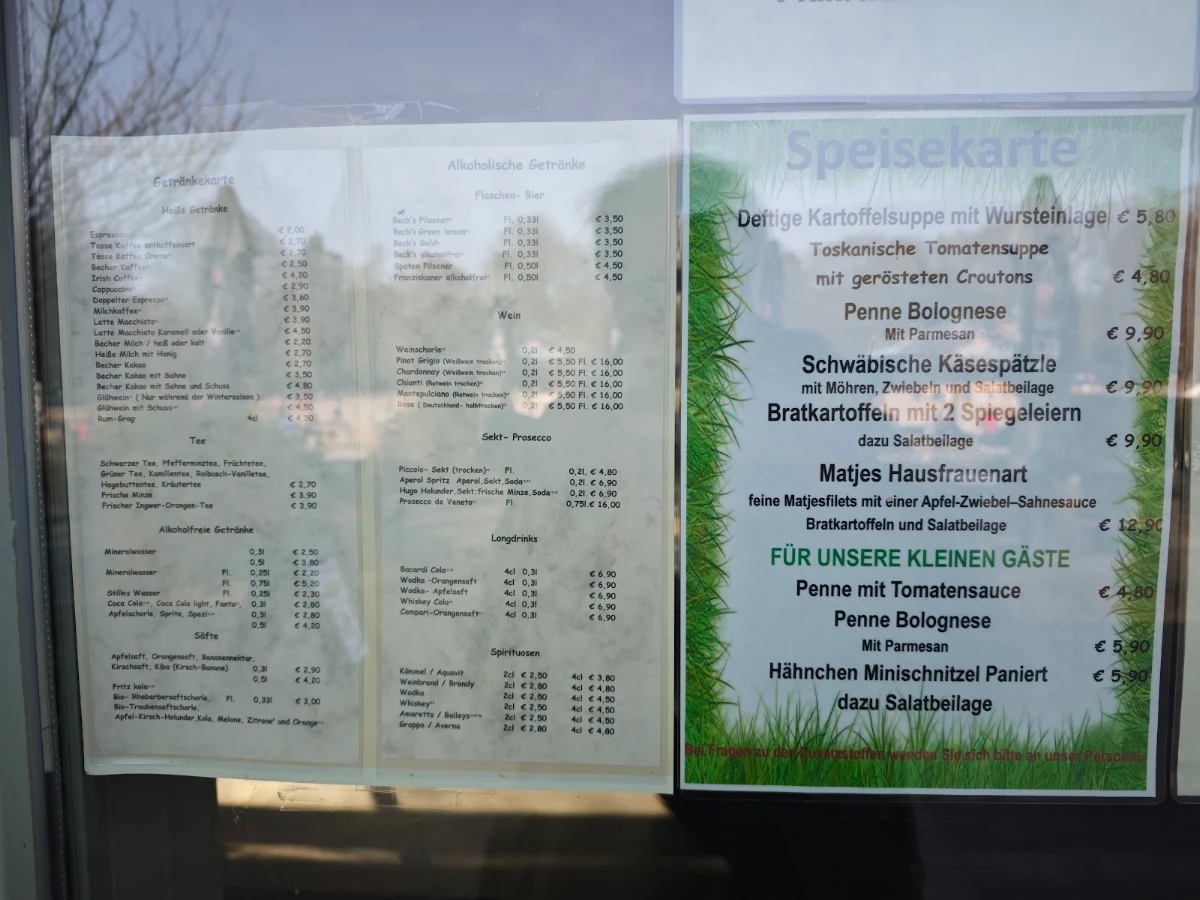 Getränkekarte
Heiße Getränke
Espresso € 2,00
Tasse Kaffee entkoffeiniert € 2,70
Tasse Kaffee Crema € 2,70
Becher Kaffee € 2,50
Irish Coffee € 4,20
Cappuccino € 2,90
Doppelter Espresso € 3,60
Milchkaffee € 3,90
Latte Macchiato € 3,90
Latte Macchiato Karamell oder Vanille € 4,50
Becher Milch / heiß oder kalt € 2,20
Heiße Milch mit Honig € 2,70
Becher Kakao € 2,70
Becher Kakao mit Sahne € 3,50
Becher Kakao mit Sahne und Schuss € 4,80
Glühwein ( Nur während der Wintersaison ) € 3,50
Glühwein mit Schuss € 4,50
Rum-Grog 4cl € 4,50
Tee
Schwarzer Tee, Pfefferminztee, Früchtetee,
Grüner Tee, Kamillentee, Roibusch-Vanilletee,
Hagebuttentee, Kräutertee € 2,70
Frische Minze € 3,90
Frischer Ingwer-Orangen-Tee € 3,90
Alkoholfreie Getränke
Mineralwasser 0,3l € 2,50
0,5l € 3,80
Mineralwasser Fl. 0,25l € 2,20
Fl. 0,75l € 5,20
Stilles Wasser Fl. 0,25l € 2,30
Coca Cola, Coca Cola light, Fanta, 0,3l € 2,80
Apfelschorle, Sprite, Spezi 0,3l € 2,80
0,5l € 4,20
Säfte
Apfelsaft, Orangensaft, Bananennektar,
Kirschsaft, Kiba (Kirsch-Banane) 0,3l € 2,90
0,5l € 4,20
Fritz kola
Bio- Rhabarbersaftschorle, Fl. 0,33l € 3,00
Bio-Traubensaftschorle,
Apfel-Kirsch-Holunder,Kola, Melone, Zitrone und Orange
Alkoholische Getränke
Flaschen- Bier
Beck's Pilsener Fl. 0,33l € 3,50
Beck's Green lemon Fl. 0,33l € 3,50
Beck's Gold Fl. 0,33l € 3,50
Beck's alkoholfrei Fl. 0,33l € 3,50
Spaten Pilsener Fl. 0,50l € 4,50
Franziskaner alkoholfrei Fl. 0,50l € 4,50
Wein
Weinschorle 0,2l € 4,50
Pinot Grigio (Weißwein trocken) 0,2l € 5,50 Fl. € 16,00
Chardonnay (Weißwein trocken) 0,2l € 5,50 Fl. € 16,00
Chianti (Rotwein trocken) 0,2l € 5,50 Fl. € 16,00
Montepulciano (Rotwein trocken) 0,2l € 5,50 Fl. € 16,00
Rose ( Deutschland- halbtrocken) 0,2l € 5,50 Fl. € 16,00
Sekt- Prosecco
Piccolo- Sekt (trocken) Fl. 0,2l, € 4,80
Aperol Spritz Aperol,Sekt,Soda 0,2l, € 6,90
Hugo Holunder,Sekt,frische Minze,Soda 0,2l, € 6,90
Prosecco de Veneto Fl. 0,75l.€ 16,00
Longdrinks
Bacardi Cola 4cl 0,3l € 6,90
Wodka -Orangensaft 4cl 0,3l € 6,90
Wodka- Apfelsaft 4cl 0,3l € 6,90
Whiskey Cola 4cl 0,3l € 6,90
Campari-Orangensaft 4cl 0,3l € 6,90
Spirituosen
Kümmel / Aquavit 2cl € 2,50 4cl € 3,80
Weinbrand / Brandy 2cl € 2,80 4cl € 4,80
Wodka 2cl € 2,50 4cl € 4,50
Whiskey 2cl € 2,50 4cl € 4,50
Amaretto / Baileys 2cl € 2,50 4cl € 4,50
Grappa / Averna 2cl € 2,80 4cl € 4,80
Speisekarte
Deftige Kartoffelsuppe mit Wursteinlage € 5,80
Toskanische Tomatensuppe
mit gerösteten Croutons € 4,80
Penne Bolognese
Mit Parmesan € 9,90
Schwäbische Käsespätzle
mit Möhren, Zwiebeln und Salatbeilage € 9,90
Bratkartoffeln mit 2 Spiegeleiern
dazu Salatbeilage € 9,90
Matjes Hausfrauenart
feine Matjesfilets mit einer Apfel-Zwiebel–Sahnesauce
Bratkartoffeln und Salatbeilage € 12,90
FÜR UNSERE KLEINEN GÄSTE
Penne mit Tomatensauce € 4,80
Penne Bolognese
Mit Parmesan € 5,90
Hähnchen Minischnitzel Paniert € 5,90
dazu Salatbeilage
Bei Fragen zu den Zusatzstoffen wenden Sie sich bitte an unser Personal.